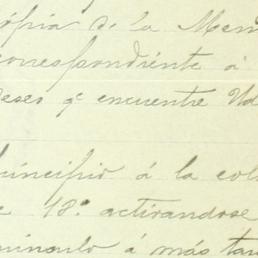 ópia de la Mem
correspondiente á
eses qe encuentre Ud
rincipio á la col
e 18º activandose
á más tar